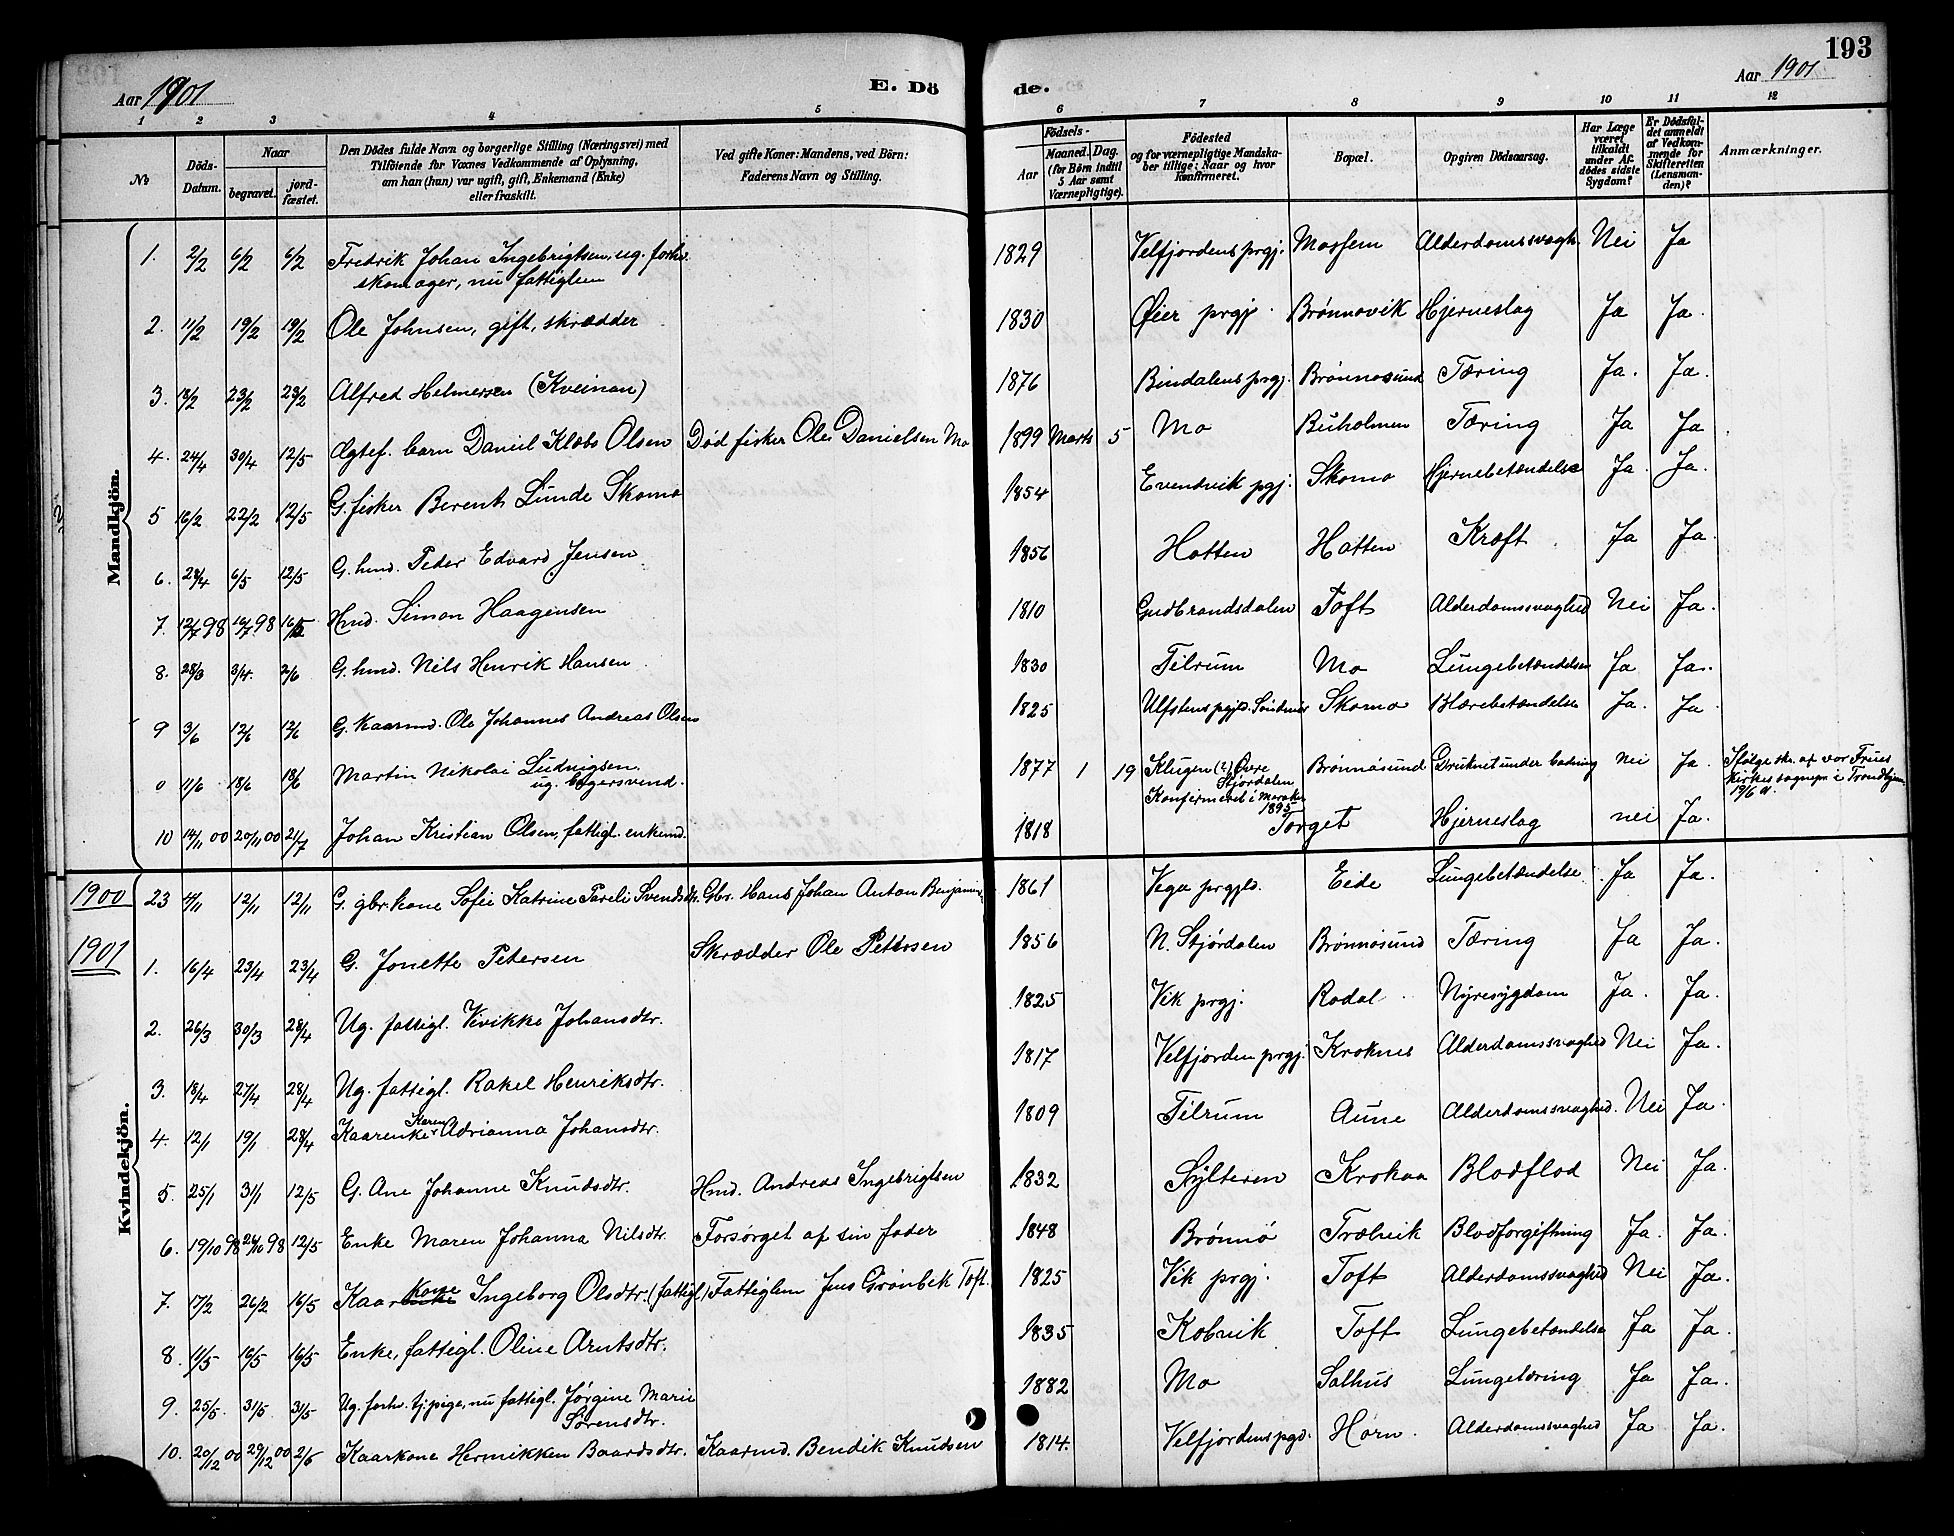 193
Aar 1901
E. Dö
de.
Aar 1901
1 2 3 4 5 6 7 8 9 10 11 12
№
Döds-Datum.
Naar
begravet. jord-fæstet.
Den Dödes fulde Navn og borgerlige Stilling (Næringsvei) med
Tilföiende for Voxnes Vedkommende af Oplysning,
om han (hun) var ugift, gift, Enkemand (Enke)
eller fraskilt.
Ved gifte Koner: Mandens, ved Börn:
Faderens Navn og Stilling.
Födsels-
Aar
Maaned. Dag.
(for Börn indtil
5 Aar samt
Værnepligtige).
Födested
og for værnepligtige Mandska-
ber tillige: Naar og hvor
konfirmeret.
Bopæl.
Opgiven Dödsaarsag.
Har Læge
været
tilkaldt
under Af-
dödes sidste
Sygdom?
Er Dödsfal-
det anmeldt
af Vedkom-
mende for
Skifteretten
(Lensman-
den)?
Anmærkninger.
Mandkjön.
1. 2/2 6/2 6/2 Fredrik Johan Ingebrigtsen, ug. forhv. 1829 Velfjordens prgj. Mosheim Alderdomssvagh. Nei Ja
skomager, nu fattiglem
2. 11/2 19/2 19/2 Ole Johnsen, gift, skrædder 1830 Øier prgj. Brønnøvik Hjerneslag Ja Ja.
3. 18/2 23/2 23/2 Alfred Helmersen (Kveinan) 1876 Bindalens prgj. Brønnøsund Tæring Ja. Ja.
4. 24/4 30/4 12/5 Ægtef. barn Daniel Klæbo Olsen Død fisker Ole Danielsen Mo 1899 Marts 5 Mo Buholmen Tæring Ja Ja
5 16/2 22/2 12/5 G. fisker Berent Lunde Skomo 1854 Evendvik pgj. Skomo Hjernebetændelse Ja. Ja.
6. 28/4 6/5 12/5 G. hmd. Peder Edvard Jensen 1856 Hatten Hatten Kræft Ja Ja.
7. 12/7 98 16/7 98 16/5 Hmd. Simon Haagensen 1810 Gudbrandsdalen Toft Alderdomssvaghed Nei Ja.
8. 28/3 3/4. 2/6 G. hmd. Nils Henrik Hansen 1830 Tilrum Mo Lungebetændelse Ja Ja.
9 3/6 12/6 12/6 G. Kaarmd. Ole Johannes Andreas Olsen 1825 Ulfstens pgjd. Søndmør Skomo Blærebetændelse Ja. Ja
0 11/6 18/6 18/6 Martin Nikolai Ludvigsen. 1877 1 19 Klugen (?) Øvre Brønnøsund Druknet under badning nei Ja. Ifølge skr. af vor Frues
ug. bagersvend. Stjørdalen
Konfirmeret i Meraker
1895
kirkes sognepr. i Trondhjem
19/6 d.
10 14/11 00 20/11 00 21/7 Johan Kristian Olsen, fattigl. enkemd. 1818 Torget Hjerneslag nei Ja.
Kvindekjön.
1900 23 4/11 12/11 12/11 G. gbr. kone Sofie Katrine Pareli Svendsdtr. Gbr. Hans Johan Anton Benjamins. 1861 Vega prgjld. Eide Lungebetændelse Ja Ja.
1901 1. 16/4 23/4 23/4 G. Jonette Petersen Skrædder Ole Pettersen 1856 N. Stjørdalen Brønnøsund Tæring Ja Ja.
2. 26/3 30/3 28/4 Ug. fattigl. Vivikke Johansdtr. 1825 Vik prgj. Rodal Nyresygdom Ja. Ja.
3. 18/4 27/4 28/4 Ug. fattigl. Rakel Henriksdtr. 1817 Velfjorden prgj. Kroknes Alderdomssvaghed Nei Ja.
4. 12/1 19/1 28/4 Kaarenke Karen Adrianna Johansdtr. 1809 Tilrum Aune Alderdomssvaghed. Nei Ja.
5. 25/1 31/1 12/5 G. Ane Johanne Knudsdtr. Hmd. Andreas Ingebrigtsen 1832 Sylteren Krokaa Blodflod Nei Ja.
6. 19/10 98 24/10 98 12/5 Enke Maren Johanna Nilsdtr. Forsørget af sin fader 1848 Brønnø Trælvik Blodforgiftning Ja. Ja.
7. 17/2 26/2 16/5 Kaarkone Ingeborg Olsdtr. (fattigl.) Fattiglem Jens Grønbek Toft. 1825 Vik prgj. Toft Alderdomssvaghed Nei Ja.
8. 11/5 16/5 16/5 Enke, fattigl. Oline Arntsdtr. 1835 Kobvik Toft Lungebetændelse Ja Ja.
9. 25/5. 31/5 31/5 Ug. forhv. tj. pige, nu fattigl. Jørgine Marie 1882 Mo Salhus Lungetæring Ja Ja.
Sørensdtr.
10. 20/12 00 29/12 00 2/6 Kaarkone Hermikken Baardsdtr. Kaarmd. Bendik Knudsen 1814. Velfjordens pgd. Horn. Alderdomssvaghed Ja Ja.